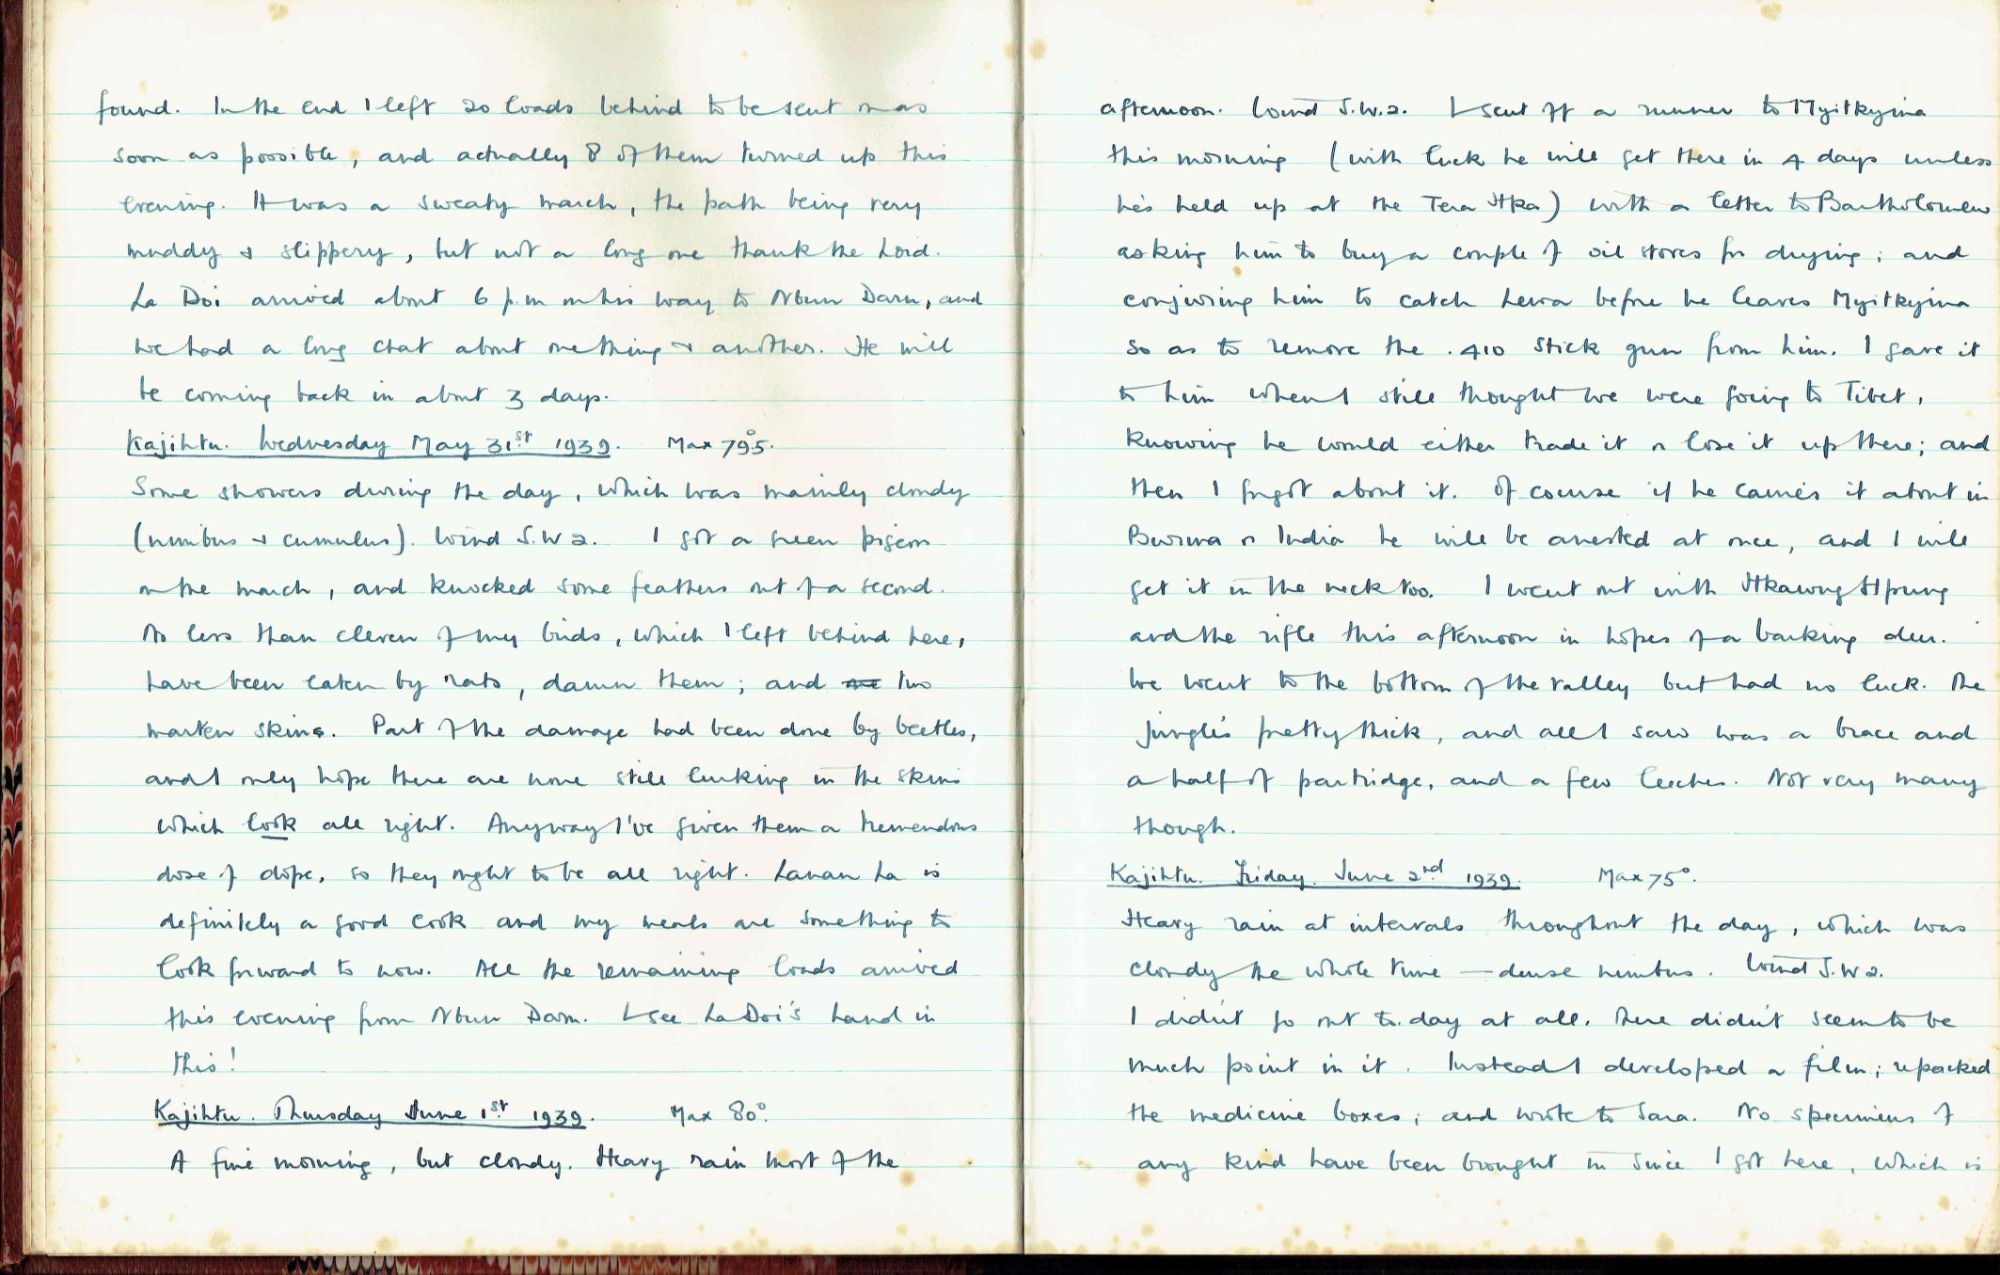 found. In the end I left 20 loads behind to be sent on as
soon as possible, and actually 8 of them turned up this
evening. It was a sweaty march, the path being very
muddy & slippery, but not a long one thank the Lord.
La Doi arrived about 6 p.m on his way to Nbun Daru, and
we had a long chat about one thing & another. He will
be coming back in about 3 days.
Kajihtu. Wednesday May 31st 1939. Max 79.5°.
Some showers during the day, which was mainly cloudy
(nimbus & cumulus). Wind S.W 2. I got a green pigeon
on the march, and knocked some feathers out of a second.
No less than eleven of my birds, which I left behind here,
have been eaten by rats, damn them; and two
marten skins. Part of the damage had been done by beetles,
and I only hope there are none still lurking in the skins
which look all right. Anyway I've given them a tremendous
dose of dope, so they ought to be all right. Lanan La is
definitely a good cook and my meals are something to
look forward to now. All the remaining loads arrived
this evening from Nbun Daru. I see La Doi's hand in
this!
Kajihtu. Thursday June 1st 1939. Max 80°.
A fine morning, but cloudy. Heavy rain most of the
afternoon. Wind S.W.2. I sent off a runner to Myitkyina
this morning (with luck he will get there in 4 days unless
he's held up at the Tera Hka) with a letter to Bartholomew
asking him to buy a couple of oil stoves for drying; and
conjuring him to catch Lewa before he leaves Myitkyina
so as to remove the .410 stick gun from him. I gave it
to him when I still thought we were going to Tibet,
knowing he would either trade it or lose it up there; and
then I forgot about it. Of course if he carries it about in
Burma or India he will be arrested at once, and I will
get it in the neck too. I went out with Hkawng Hpung
and the rifle this afternoon in hopes of a barking deer.
We went to the bottom of the valley but had no luck. The
jungle's pretty thick, and all I saw was a brace and
a half of partridge, and a few leeches. Not very many
though.
Kajihtu. Friday. June 2nd 1939. Max 75°.
Heavy rain at intervals throughout the day, which was
cloudy the whole time — dense nimbus. Wind S.W 2.
I didn't go out to.day at all. There didn't seem to be
much point in it. Instead I developed a film; repacked
the medicine boxes; and wrote to Sara. No specimens of
any kind have been brought in since I got here, which is